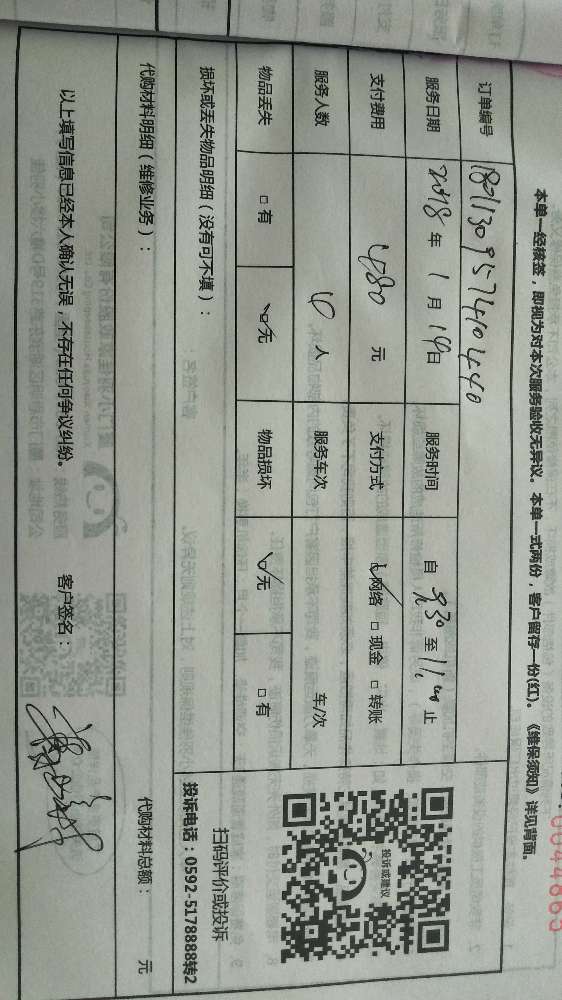 0044665
本单一经核签，即视为对本次服务验收无异议。本单一式两份，客户留存一份(红)。《维保须知》详见背面。
订单编号 1801130957410440
服务日期 2018 年 1 月 14 日 服务时间 自 9:30 至 11:00 止
支付费用 480 元 支付方式 ☑网络 □现金 □转账
服务人数 6 人 服务车次 车/次
物品丢失 □有 ☑无 物品损坏 ☑无 □有
损坏或丢失物品明细（没有可不填）：
投诉或建议
扫码评价或投诉
投诉电话：0592-5178888转2
代购材料明细（维修业务）：
代购材料总额： 元
以上填写信息已经本人确认无误，不存在任何争议纠纷。 客户签名：